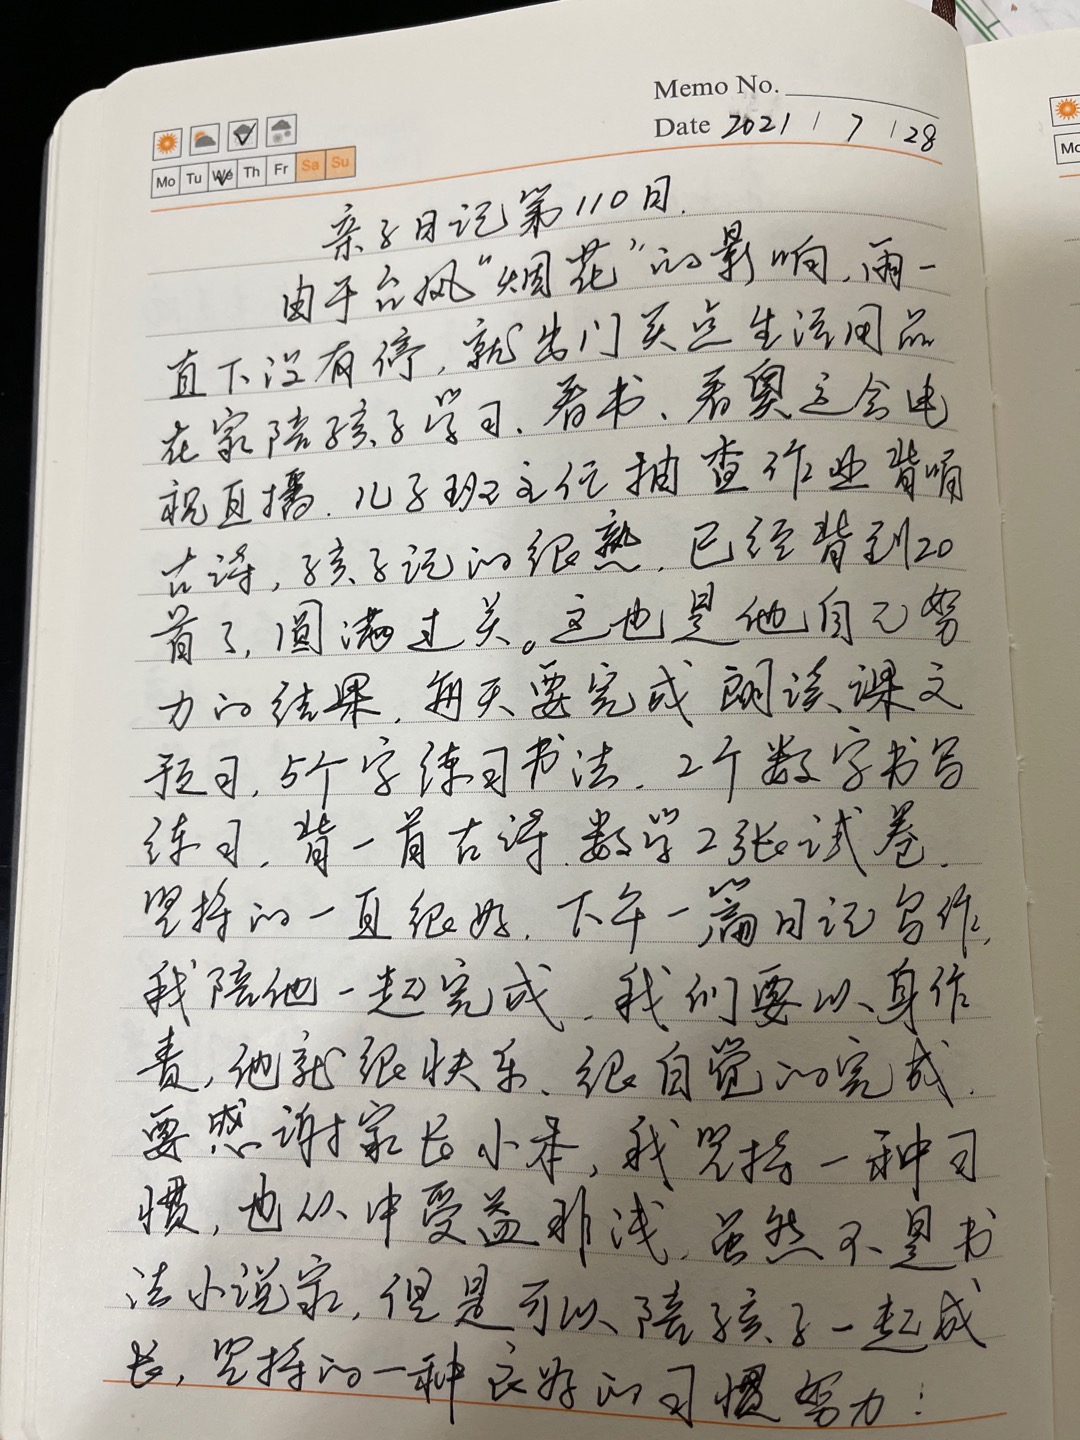 Memo No.
Date 2021 / 7 / 28
Mo Tu We Th Fr Sa Su
亲子日记第110日.
由于台风“烟花”的影响,雨一
直下没有停,就出门买点生活用品
在家陪孩子学习、看书、看奥运会电
视直播.儿子班主任抽查作业背诵
古诗,孩子记的很熟,已经背到20
首了,圆满过关。这也是他自己努
力的结果,每天要完成朗读、课文
预习,5个字练习书法,2个数字书写
练习,背一首古诗.数学2张试卷.
坚持的一直很好.下午一篇日记写作,
我陪他一起完成.我们要以身作
责,他就很快乐、很自觉的完成.
要感谢家长小本,我坚持一种习
惯,也从中受益非浅.虽然不是书
法小说家,但是可以陪孩子一起成
长,坚持的一种良好的习惯努力!
Mo